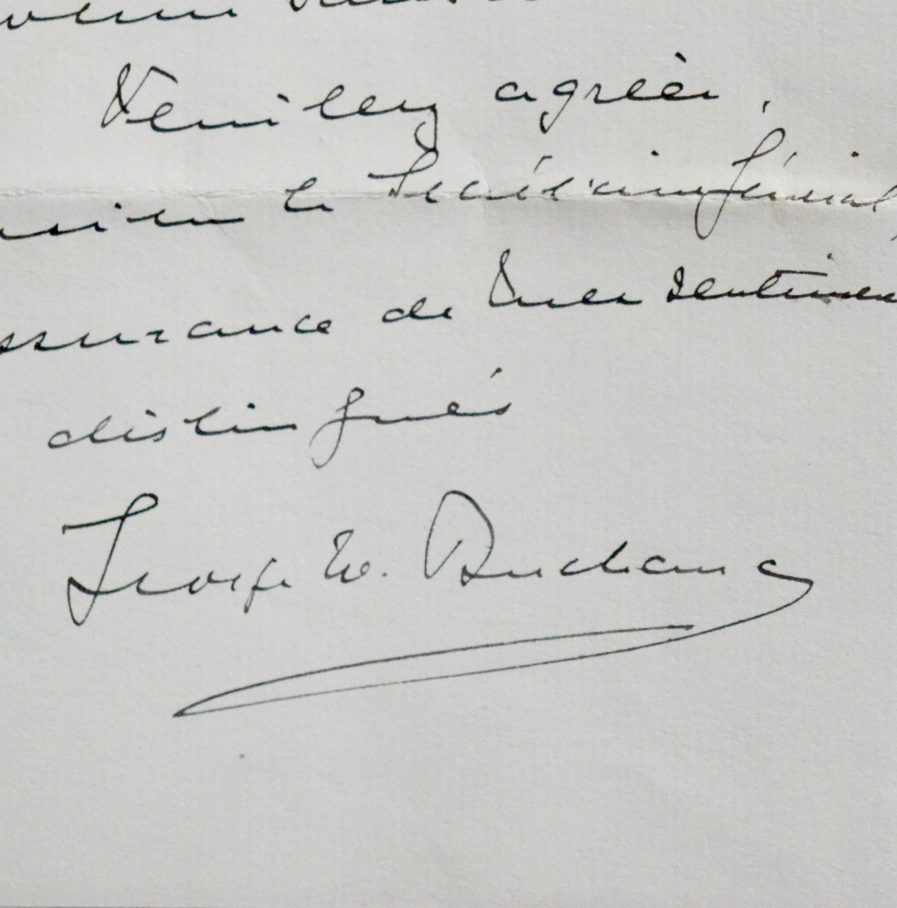 Veuillez agréer,
le Secrétaire Général,
assurance de mes sentimen
distingués
George W. Buchanan